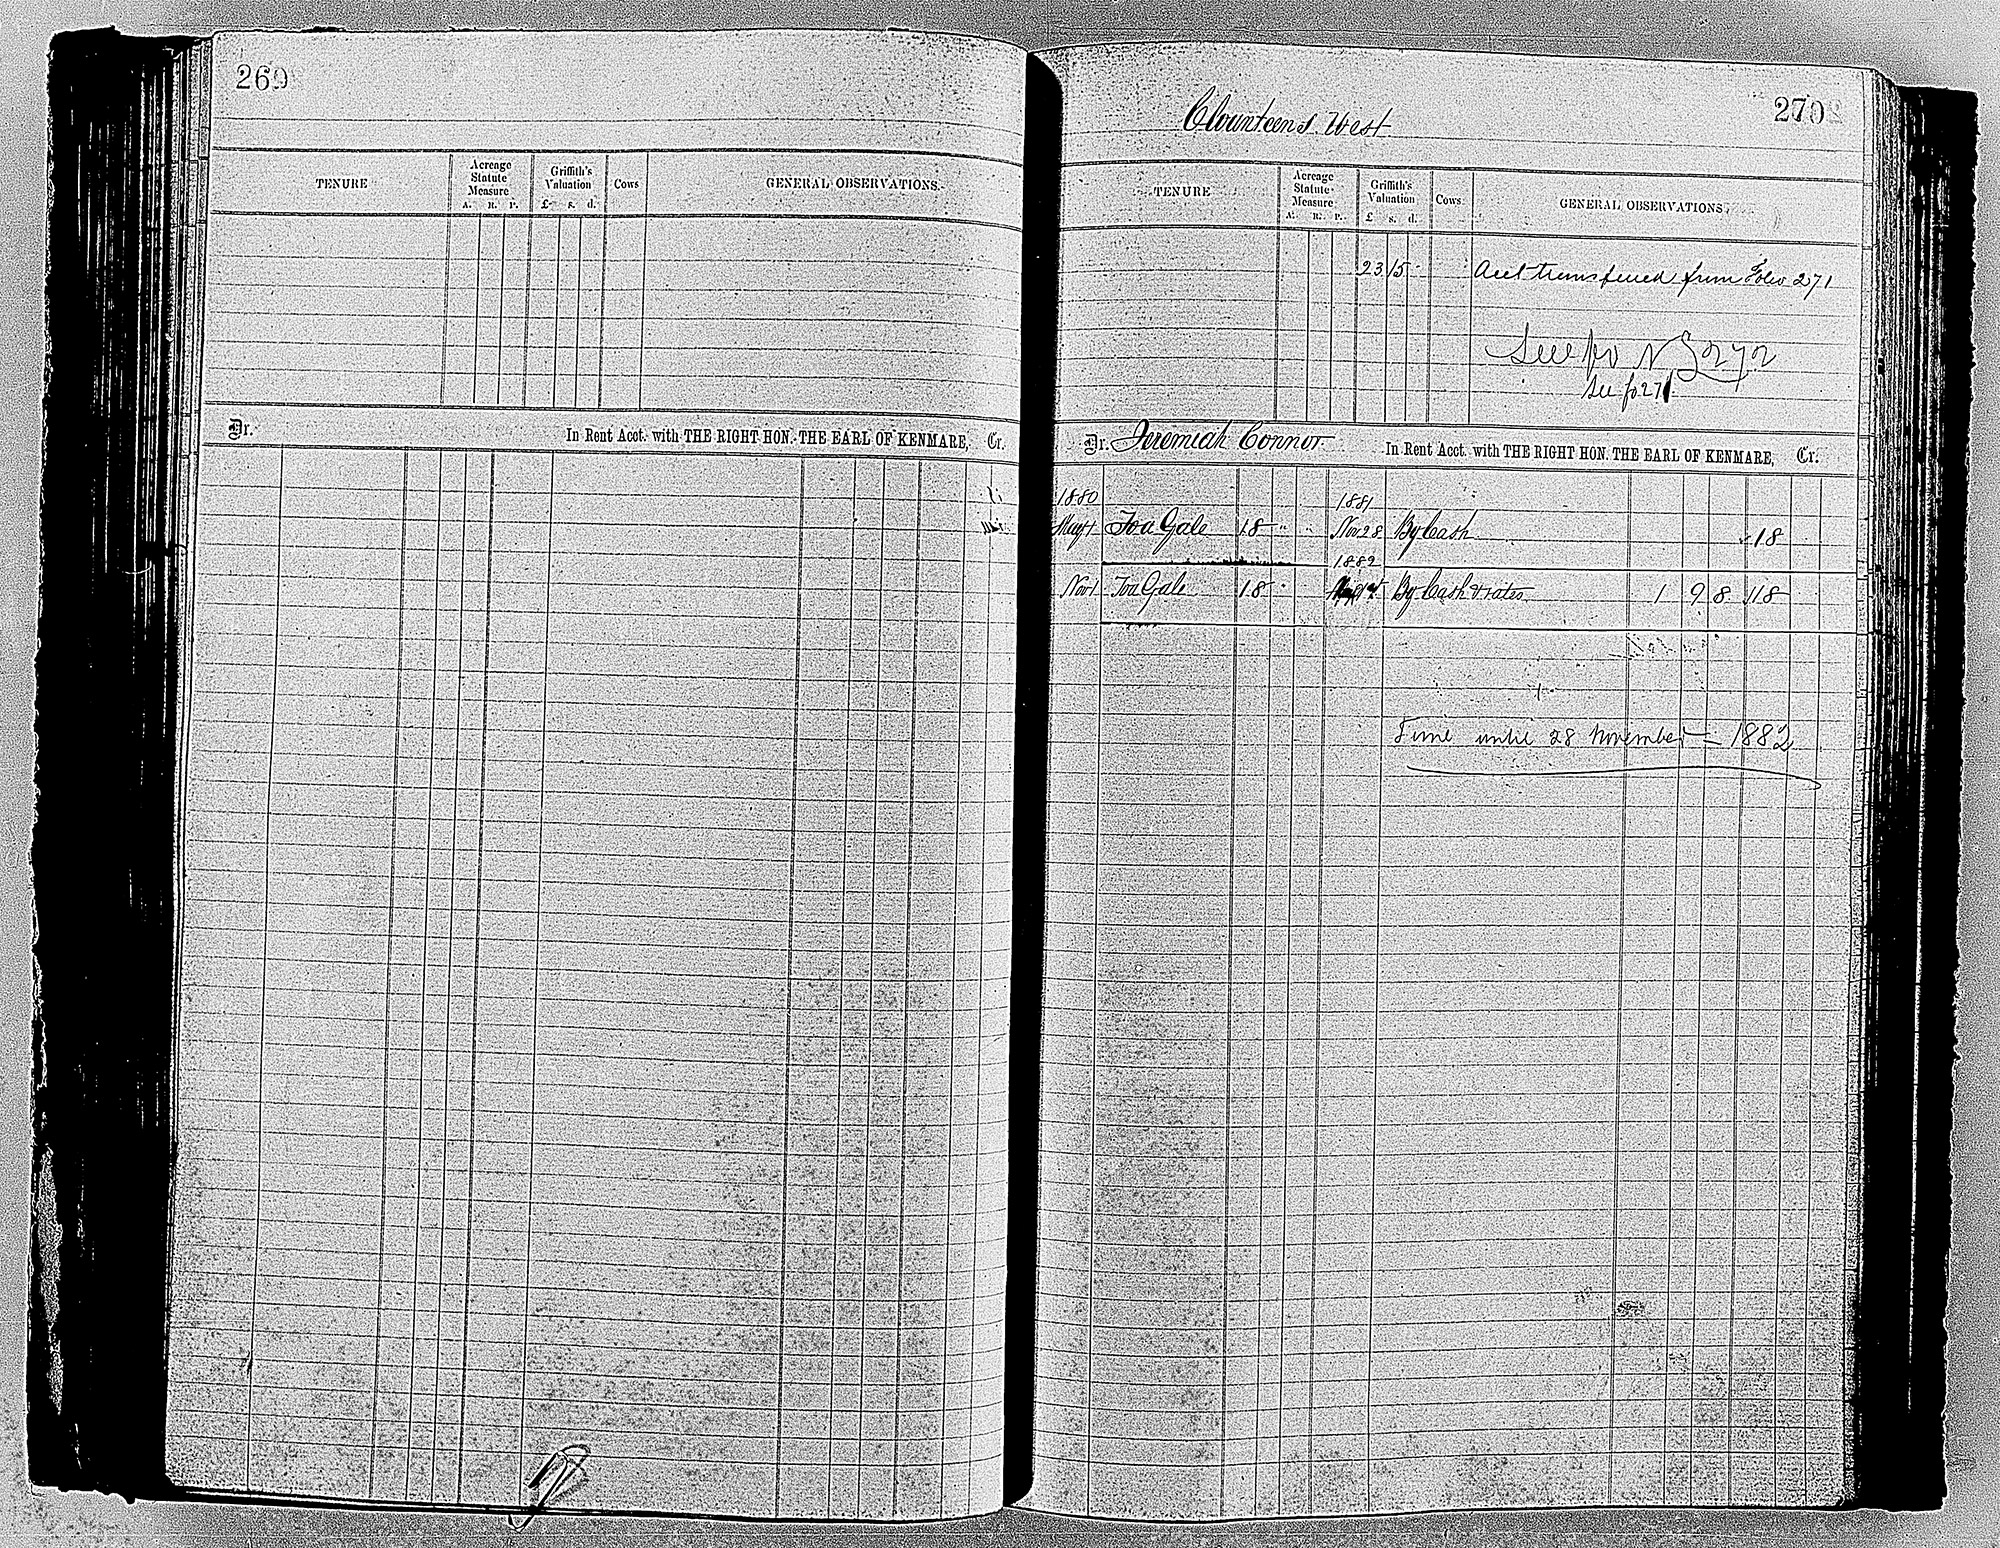 269
TENURE
Acreage Statute Measure
A. R. P.
Griffith's Valuation
£ s. d.
Cows
GENERAL OBSERVATIONS.
Dr. In Rent Acct. with THE RIGHT HON. THE EARL OF KENMARE, Cr.
270
Clounteens West
TENURE
Acreage Statute Measure
A. R. P.
Griffith's Valuation
£ s. d.
Cows
GENERAL OBSERVATIONS.
23 15 - Acct transferred from Folio 271
See fo 272
See fo 271
Dr. Jeremiah Connor In Rent Acct. with THE RIGHT HON. THE EARL OF KENMARE, Cr.
1880 1881
May 1 To a Gale 18 " " Nov 28 By Cash 18
1882
Nov 1 To a Gale 18 By Cash & rates 1 9 8 18
Time until 28 November - 1882